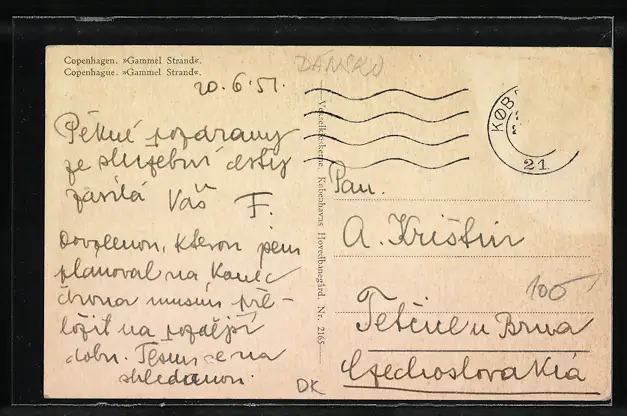 Copenhagen. »Gammel Strand«.
Copenhague. »Gammel Strand«.
DÁNSKO
20.6.51.
Pěkné pozdravy
ze služební cesty
zasílá Váš F.
Dovolenou, kterou jsem
plánoval na konec
června musím pře-
ložit na pozdější
dobu. Těším se na
shledanou.
DK
Kiosken, Københavns Hovedbanegård. Nr. 2165
KØB
21
Pan.
A. Krištin
100
Tetčice u Brna
Czechoslovakia